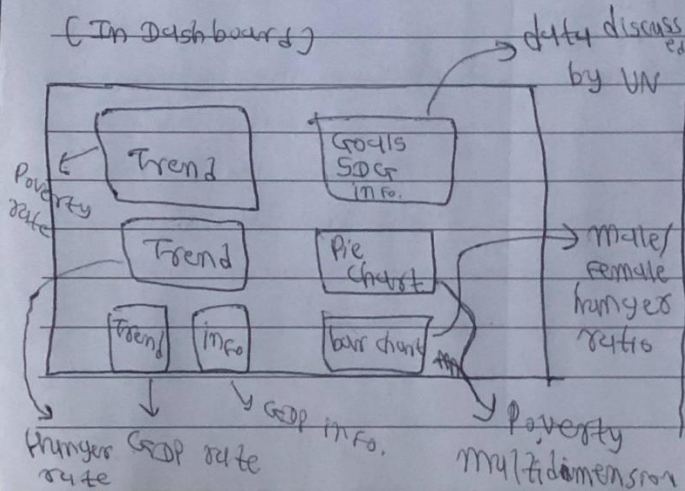 (In Dashboard)
data discuss
ed
by UN
Trend
Goals
SDG
info.
Poverty
rate
Trend
Pie
chart
male/
female
hunger
ratio
Trend
info
bar chart
Hunger
rate
GDP rate
GDP info.
Poverty
multidimension